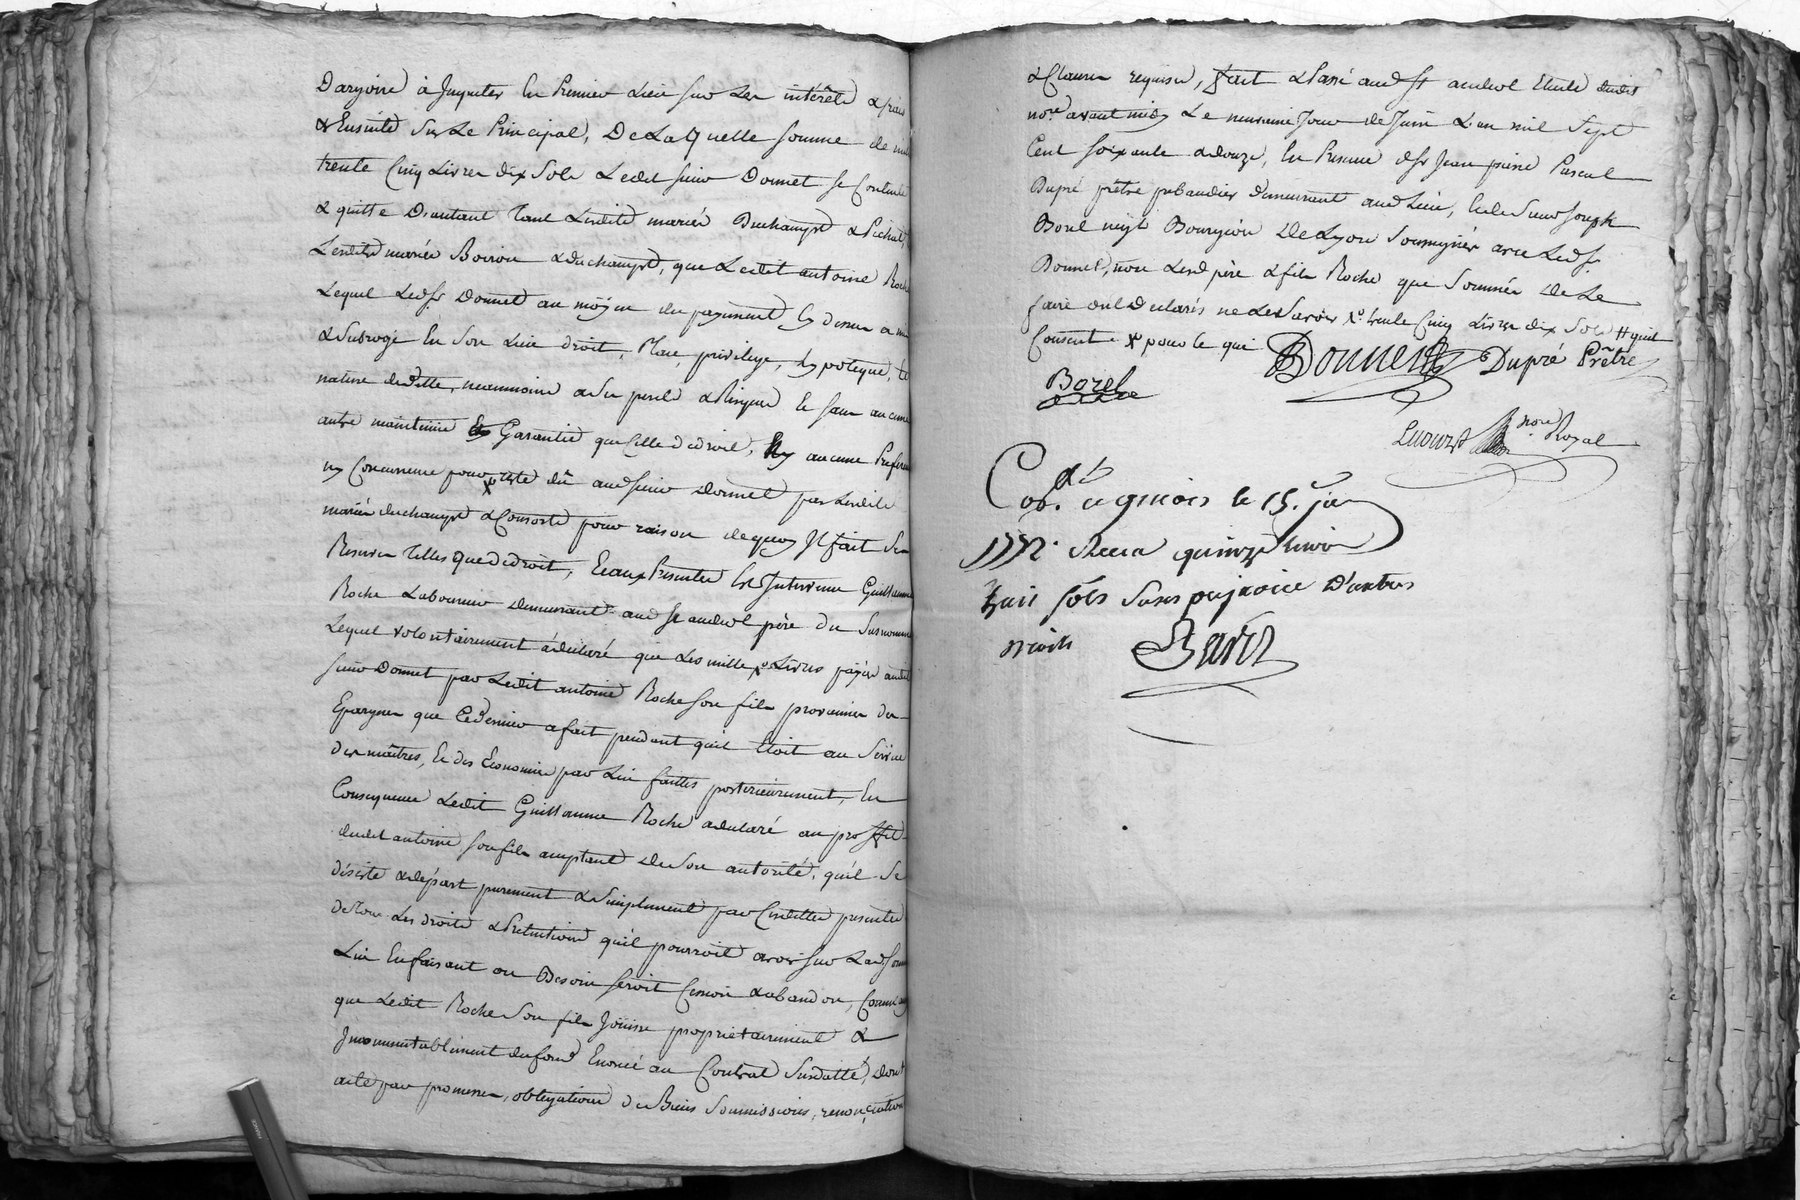 D'argoire à Imputer En Premier Lieu sur Les intérêts & frais
& Ensuite Sur Le Principal, De La Quelle somme de mille
trente Cinq Livres dix Sols Ledit sieur Donnet se Contente
& quitte D'autant Tant Lesdits mariés Duchampt & Pichat
Lesdits mariés Boiron & duchampt, que Ledit antoine Roche
Lequel Ledsr Donnet au moÿen du payement Cy dessus a mis
& Subrogé En Son Lieu droit, Place, privilege, hypoteque,
nature de dette, neanmoins a Ses perils & Risques Et sans aucune
autre maintenue Garantie que Celle de droit, Ny aucune Preferance
ny Concurrence pour reste dû aud sieur Donnet par Lesdits
mariés duchampt & Consorts pour raison de quoy Il fait Ses
Reserves telles que de droit, Et aux Presentes Est Intervenu Guillaume
Roche Laboureur demeurant aud St andeol père du Susnommé
Lequel volontairement a déclaré que Les mille xo Livres païés audit
sieur Donnet par Ledit antoine Roche son fils proviennes des
Epargnes que Ce dernier a fait pendant qu'il Etoit au Service
des maîtres, Et des Economies par Lui faittes posterieurement, En
Consequence Ledit Guillaume Roche a declaré au proffit
dudit antoine son fils acceptant de Son autorité, qu'il Se
désiste & départ purement & Simplement par Cesdittes presentes
de Tous Les droits & Pretentions qu'il pourroit avoir sur Lad somme
Lui En faisant au Besoin seroit Cession & abandon, Consent
que Ledit Roche Son fils Joüisse proprietairement &
Incommutablement du fond Enoncé au Contrat Susdatté, dont
acte par promesses, obligations de Biens Soumissions, renonciations
& Clauses requises, fait & Passé aud St andeol Etude dudit
nore avant midy Le neuvieme Jour de Juin L'an mil Sept
Cent soixante & douze, En Presence de Sr Jean pierre Pascal
Dupré prêtre prebandier demeurant aud Lieu, & de Sieur Joseph
Borel negt Bourgeois de Lyon Soussignés avec Ledsr
Donnet, non Lesd père & fils Roche que Sommés de Le
faire ont Declarés ne Le Savoir xo trente Cinq Livres dix Sols # quil
Consent x pour le qui Donnet Dupré Prêtre
Borel
nore Royal
le 15. juin
1772. Reçu quinze livres
huit sols Sans prejudice D'autres
droits